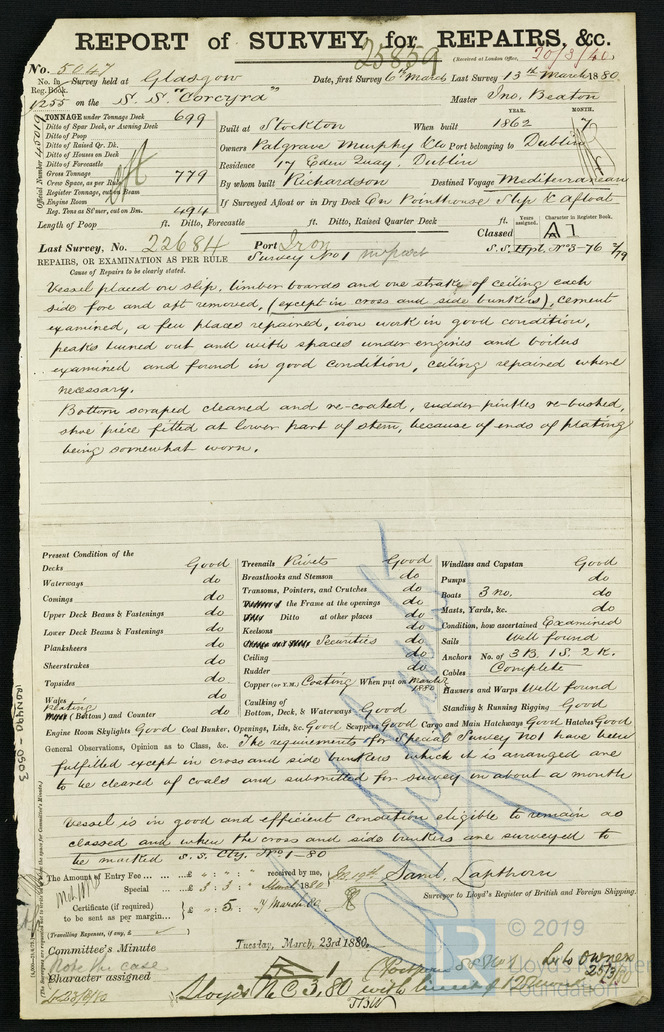 REPORT of SURVEY for REPAIRS, &c.
25859
(Received at London Office, 20/3/80)
No. 5047
No. in Survey held at Glasgow Date, first Survey 6th March Last Survey 13th March 1880
Reg. Book.
1255 on the S. S. "Corcyra" Master Jno. Beaton
TONNAGE under Tonnage Deck 699
Ditto of Spar Deck, or Awning Deck
Ditto of Poop
Ditto of Raised Qr. Dk.
Ditto of Houses on Deck
Ditto of Forecastle
Gross Tonnage 779
Crew Space, as per Rule
Register Tonnage, cut on Beam
Engine Room
Reg. Tons as St'mer, cut on Bm. 494
Official Number 45019
YEAR. MONTH.
Built at Stockton When built 1862 7
Owners Palgrave Murphy & Co Port belonging to Dublin
Residence 17 Eden Quay, Dublin
By whom built Richardson Destined Voyage Mediterranean
If Surveyed Afloat or in Dry Dock On Pointhouse Slip & afloat
Length of Poop ft. Ditto, Forecastle ft. Ditto, Raised Quarter Deck ft.
Years assigned. Character in Register Book.
Classed A 1
S.S. Hpl. No 3-76 2/79
Last Survey, No. 22684 Port Iron
REPAIRS, OR EXAMINATION AS PER RULE Survey No 1 in part
Cause of Repairs to be clearly stated.
Vessel placed on slip, limber boards and one strake of ceiling each
side fore and aft removed, (except in cross and side bunkers), cement
examined, a few places repaired, iron work in good condition,
peaks turned out and with spaces under engines and boilers
examined and found in good condition, ceiling repaired where
necessary.
Bottom scraped cleaned and re-coated, rudder pintles re-bushed,
shoe piece fitted at lower part of stem, because of ends of plating
being somewhat worn.
Present Condition of the
Decks Good
Waterways do
Comings do
Upper Deck Beams & Fastenings do
Lower Deck Beams & Fastenings do
Planksheers do
Sheerstrakes do
Topsides do
Wales do
Plating (Bottom) and Counter do
Treenails Rivets Good
Breasthooks and Stemson do
Transoms, Pointers, and Crutches do
the Frame at the openings do
Ditto at other places do
Keelsons do
Securities do
Ceiling do
Rudder do
Copper (or Y.M.) Coating When put on March 1880
Caulking of
Bottom, Deck, & Waterways Good
Windlass and Capstan Good
Pumps do
Boats 3 no. do
Masts, Yards, &c. do
Condition, how ascertained Examined
Sails Well found
Anchors No. of 3 B. 1 S. 2 K.
Cables Complete
Hawsers and Warps Well found
Standing & Running Rigging Good
Engine Room Skylights Good Coal Bunker, Openings, Lids, &c. Good Scuppers Good Cargo and Main Hatchways Good Hatches Good
General Observations, Opinion as to Class, &c. The requirements for Special Survey No 1 have been
fulfilled except in cross and side bunkers which it is arranged are
to be cleared of coals and submitted for survey in about a month
Vessel is in good and efficient condition eligible to remain as
classed and when the cross and side bunkers are surveyed to
be marked S. S. Cly. No 1-80
The Amount of Entry Fee ... £ : : received by me,
Special ... £ 3 : 3 : March 1880
Saml. Lapthorn
Surveyor to Lloyd's Register of British and Foreign Shipping.
Certificate (if required) to be sent as per margin... £ : 5 :
(Travelling Expenses, if any, £ )
Committee's Minute Tuesday, March, 23rd 1880.
Note the case
Character assigned
Lloyds M C 3, 80 with limit of 12 months
Lr to Owners
25/3/80
IRON490-0503
© 2019
Lloyd's Register
Foundation